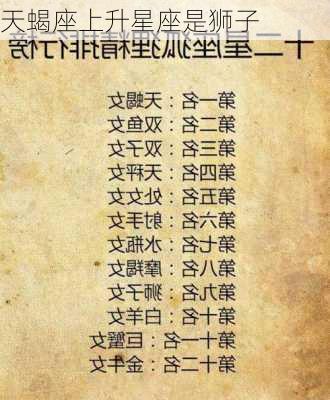 天蝎座上升星座是狮子
十二星座狐狸精排行榜
第一名：天蝎女
第二名：双鱼女
第三名：双子女
第四名：天秤女
第五名：处女女
第六名：射手女
第七名：水瓶女
第八名：摩羯女
第九名：狮子女
第十名：白羊女
第十一名：巨蟹女
第十二名：金牛女